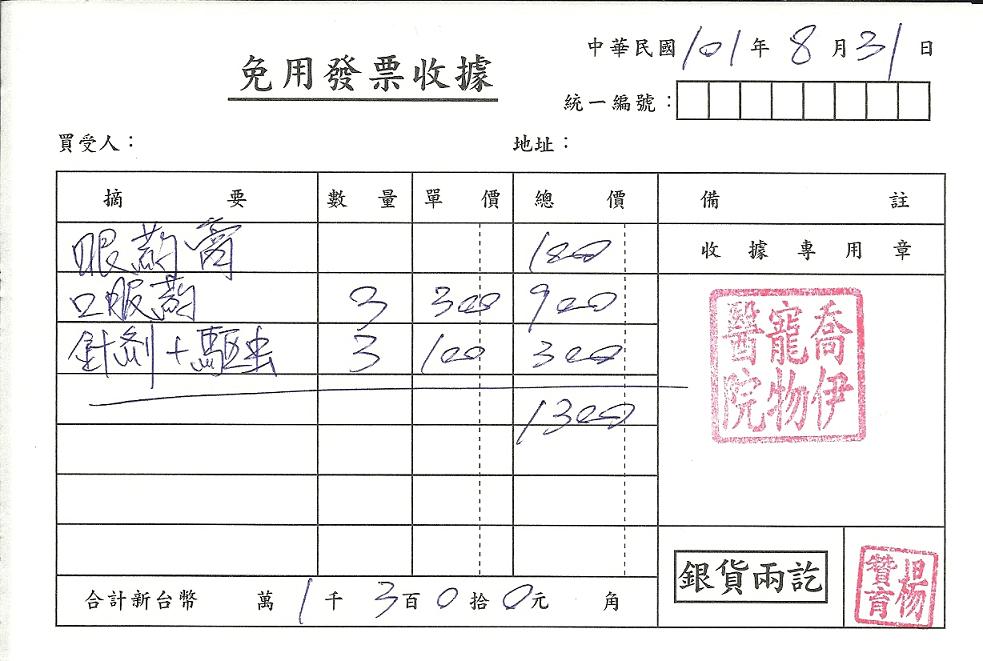 免用發票收據
中華民國101年8月31日
統一編號：
買受人： 地址：
摘要 數量 單價 總價 備註
眼葯膏 100
收據專用章
口服葯 3 300 900
針劑+驅虫 3 100 300
1300
喬伊
寵物
醫院
銀貨兩訖
楊
贊育
合計新台幣 萬1千3百0拾0元 角